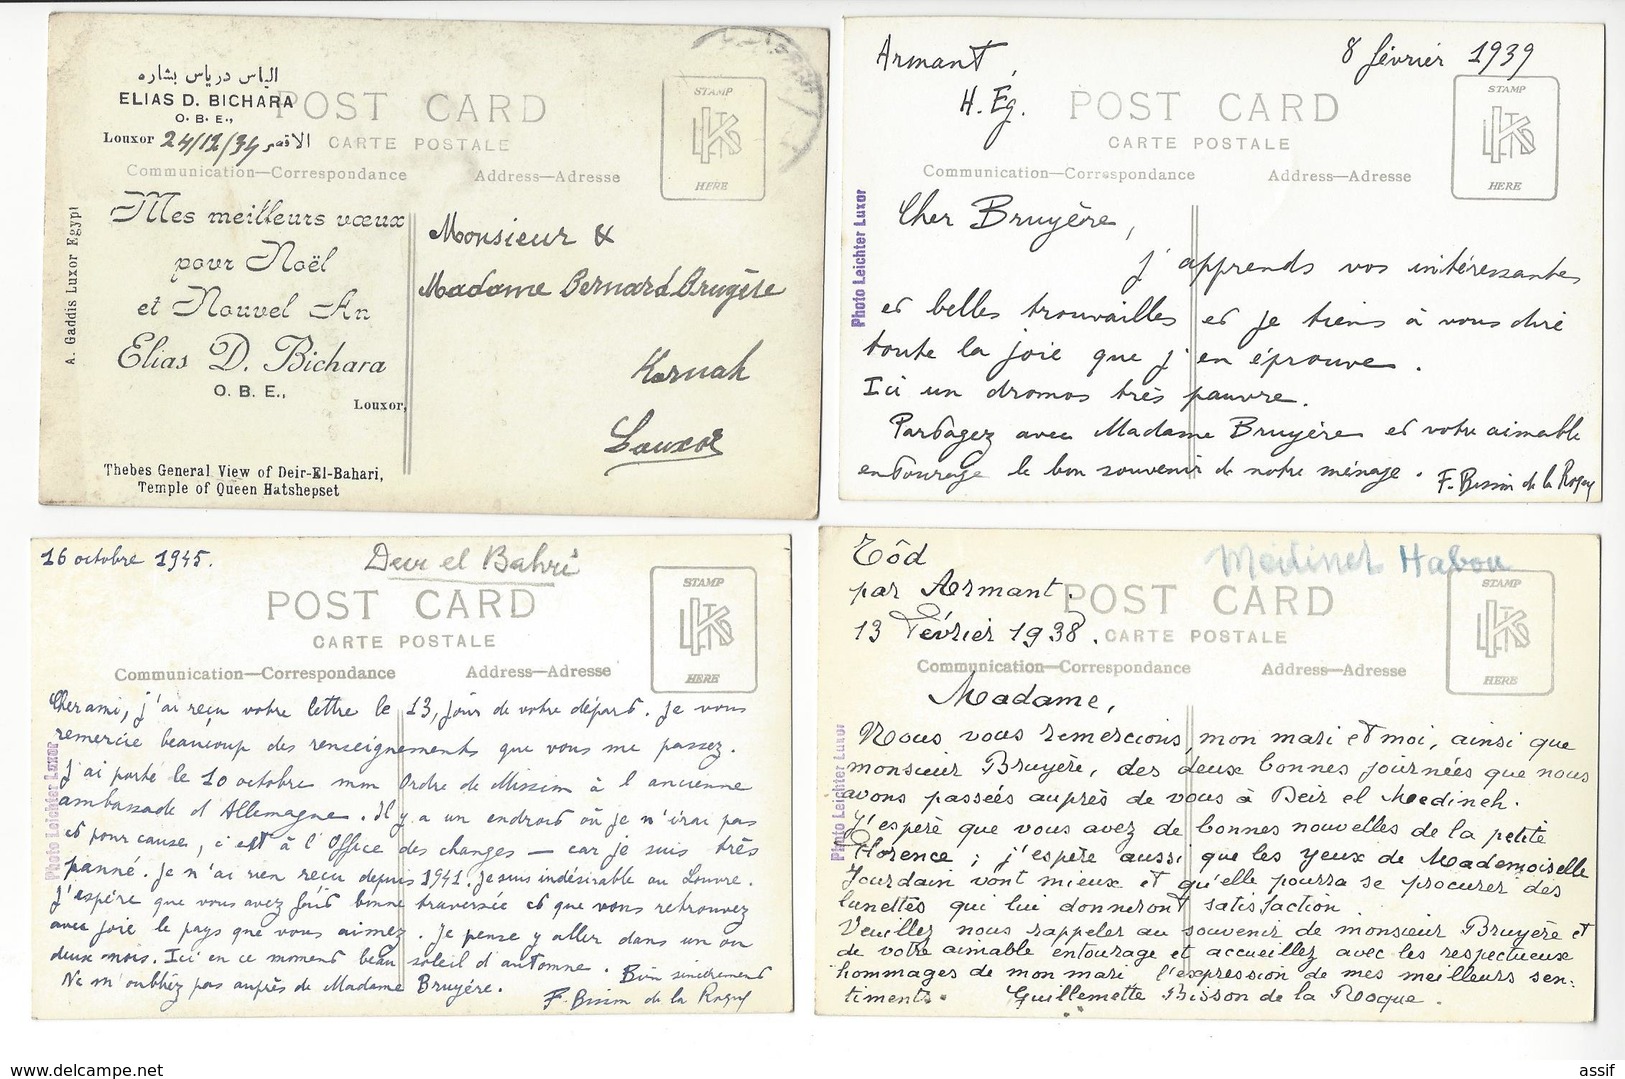 الياس درياس بشاره
ELIAS D. BICHARA
O. B. E.,
Louxor 24/12/34 الاقصر
POST CARD
CARTE POSTALE
Communication—Correspondance
Address—Adresse
STAMP
HERE
Mes meilleurs vœux
pour Noël
et Nouvel An
Elias D. Bichara
O. B. E.,
Louxor,
A. Gaddis Luxor Egypt
Monsieur &
Madame Bernard Bruyère
Kurnah
Louxor
Thebes General View of Deir-El-Bahari,
Temple of Queen Hatshepset
Armant,
H. Ég.
8 février 1939
POST CARD
CARTE POSTALE
Communication—Correspondance
Address—Adresse
STAMP
HERE
Photo Leichter Luxor
Cher Bruyère,
J'apprends vos intéressantes
et belles trouvailles et je tiens à vous dire
toute la joie que j'en éprouve.
Ici un dromos très pauvre.
Partagez avec Madame Bruyère et votre aimable
entourage le bon souvenir de notre ménage.
F. Bisson de la Roque
16 octobre 1945.
Deir el Bahri
POST CARD
CARTE POSTALE
Communication—Correspondance
Address—Adresse
STAMP
HERE
Photo Leichter Luxor
Cher ami, j'ai reçu votre lettre le 13, jour de votre départ. Je vous
remercie beaucoup des renseignements que vous me passez.
J'ai porté le 10 octobre mon Ordre de Mission à l'ancienne
ambassade d'Allemagne. Il y a un endroit où je n'irai pas
et pour cause, c'est à l'Office des changes — car je suis très
panné. Je n'ai rien reçu depuis 1941. Je suis indésirable au Louvre.
J'espère que vous avez fait bonne traversée et que vous retrouvez
avec joie le pays que vous aimez. Je pense y aller dans un ou
deux mois. Ici en ce moment beau soleil d'automne. Bien sincèrement
Ne m'oubliez pas auprès de Madame Bruyère.
F. Bisson de la Roque
Tôd
par Armant.
13 Février 1938.
Medinet Habou
POST CARD
CARTE POSTALE
Communication—Correspondance
Address—Adresse
STAMP
HERE
Photo Leichter Luxor
Madame,
Nous vous remercions, mon mari et moi, ainsi que
monsieur Bruyère, des deux bonnes journées que nous
avons passées auprès de vous à Deir el Medineh.
J'espère que vous avez de bonnes nouvelles de la petite
Florence ; j'espère aussi que les yeux de Mademoiselle
Jourdain vont mieux et qu'elle pourra se procurer des
lunettes qui lui donneront satisfaction.
Veuillez nous rappeler au souvenir de monsieur Bruyère et
de votre aimable entourage et accueillez avec les respectueux
hommages de mon mari l'expression de mes meilleurs sen-
timents.
Guillemette Bisson de la Roque.
assif